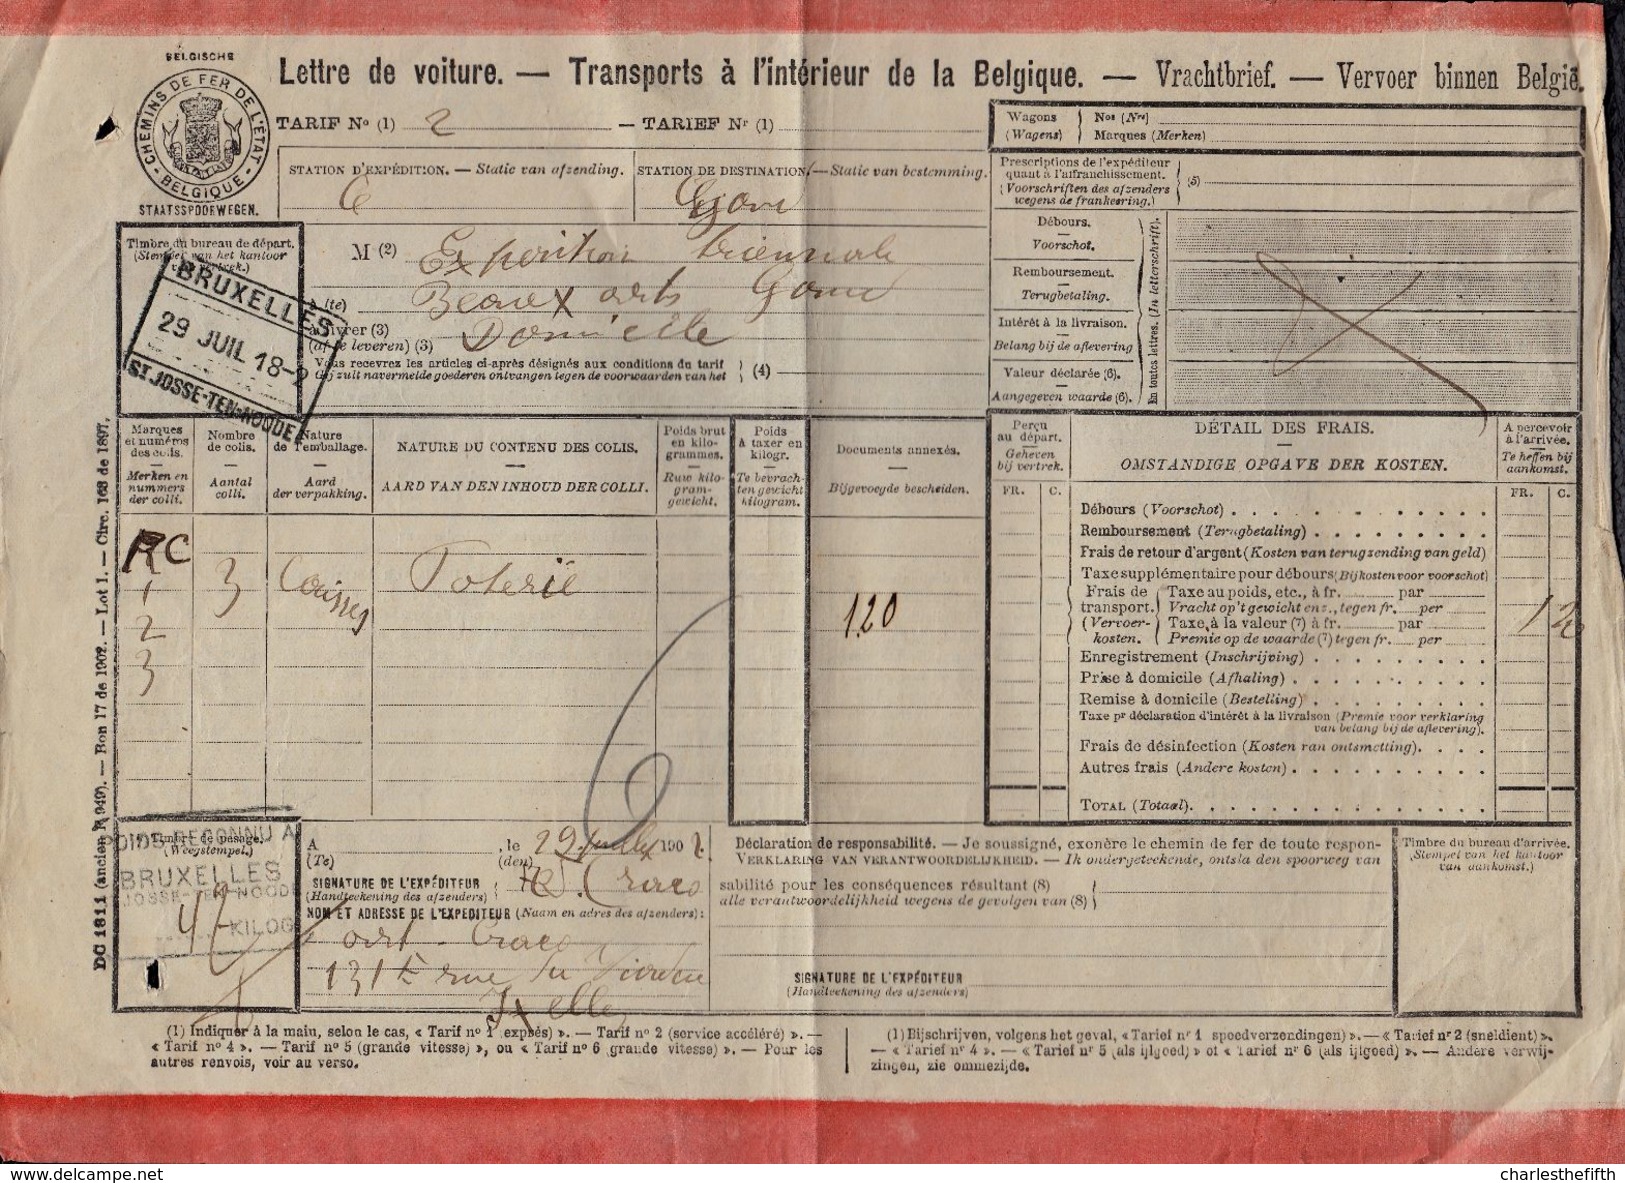 BELGISCHE
CHEMINS DE FER DE L'ÉTAT
- BELGIQUE -
STAATSSPOORWEGEN.
Lettre de voiture. — Transports à l'intérieur de la Belgique. — Vrachtbrief. — Vervoer binnen België.
TARIF No (1) 2 — TARIEF Nr (1)
Wagons (Wagens) Nos (Nrs)
Marques (Merken)
STATION D'EXPÉDITION. — Statie van afzending.
STATION DE DESTINATION. — Statie van bestemming.
Gand
Prescriptions de l'expéditeur
quant à l'affranchissement.
(Voorschriften des afzenders
wegens de frankeering.)
(5)
Timbre du bureau de départ.
(Stempel van het kantoor
van vertrek.)
BRUXELLES
29 JUIL 18-2
ST JOSSE-TEN-NOODE
M (2) Exposition triennale
à (te) Beaux arts Gand
à livrer (3) Domicile
(af te leveren) (3)
Vous recevrez les articles ci-après désignés aux conditions du tarif
Gij zult navermelde goederen ontvangen tegen de voorwaarden van het
(4)
Débours.
Voorschot.
Remboursement.
Terugbetaling.
Intérêt à la livraison.
Belang bij de aflevering
Valeur déclarée (6).
Aangegeven waarde (6).
En toutes lettres. (In letterschrift).
DC 1811 (ancien R 949). — Bon 17 de 1902. — Lot 1. — Circ. 168 de 1897.
Marques et numéros des colis.
Merken en nummers der colli.
Nombre de colis.
Aantal colli.
Nature de l'emballage.
Aard der verpakking.
NATURE DU CONTENU DES COLIS.
AARD VAN DEN INHOUD DER COLLI.
Poids brut en kilogrammes.
Ruw kilogramgewicht.
Poids à taxer en kilogr.
Te bevrachten gewicht kilogram.
Documents annexés.
Bijgevoegde bescheiden.
RC
1 3 Caisses Poterie
2
3
120
Perçu au départ.
Geheven bij vertrek.
FR. C.
DÉTAIL DES FRAIS.
OMSTANDIGE OPGAVE DER KOSTEN.
A percevoir à l'arrivée.
Te heffen bij aankomst.
FR. C.
Débours (Voorschot)
Remboursement (Terugbetaling)
Frais de retour d'argent (Kosten van terugzending van geld)
Taxe supplémentaire pour débours (Bijkosten voor voorschot)
Frais de transport. (Vervoerkosten.
Taxe au poids, etc., à fr. par
Vracht op 't gewicht enz., tegen fr. per
Taxe, à la valeur (7) à fr. par
Premie op de waarde (7) tegen fr. per
1 20
Enregistrement (Inschrijving)
Prise à domicile (Afhaling)
Remise à domicile (Bestelling)
Taxe pr déclaration d'intérêt à la livraison (Premie voor verklaring
van belang bij de aflevering).
Frais de désinfection (Kosten van ontsmetting).
Autres frais (Andere kosten)
TOTAL (Totaal).
Timbre de pesage.
(Weegstempel.)
POIDS RECONNU A
BRUXELLES
JOSSE-TEN-NOODE
47 KILOG
A (Te) , le (den) 29 juillet 1902.
SIGNATURE DE L'EXPÉDITEUR
(Handteekening des afzenders)
Craco
NOM ET ADRESSE DE L'EXPÉDITEUR (Naam en adres des afzenders):
art. Craco
131 rue du Viaduc
Ixelles
Déclaration de responsabilité. — Je soussigné, exonère le chemin de fer de toute respon-
VERKLARING VAN VERANTWOORDELIJKHEID. — Ik ondergeteekende, ontsla den spoorweg van
sabilité pour les conséquences résultant (8)
alle verantwoordelijkheid wegens de gevolgen van (8)
SIGNATURE DE L'EXPÉDITEUR
(Handteekening des afzenders)
Timbre du bureau d'arrivée.
(Stempel van het kantoor
van aankomst.)
(1) Indiquer à la main, selon le cas, « Tarif no 1 (exprès) ». — Tarif no 2 (service accéléré) ». —
« Tarif no 4 ». — Tarif no 5 (grande vitesse) », ou « Tarif no 6 (grande vitesse) ». — Pour les
autres renvois, voir au verso.
(1) Bijschrijven, volgens het geval, « Tarief nr 1 spoedverzendingen) ». — « Tarief nr 2 (sneldient) ».
— « Tarief nr 4 ». — « Tarief nr 5 (als ijlgoed) » of « Tarief nr 6 (als ijlgoed) ». — Andere verwij-
zingen, zie ommezijde.
www.delcampe.net
charlesthefifth